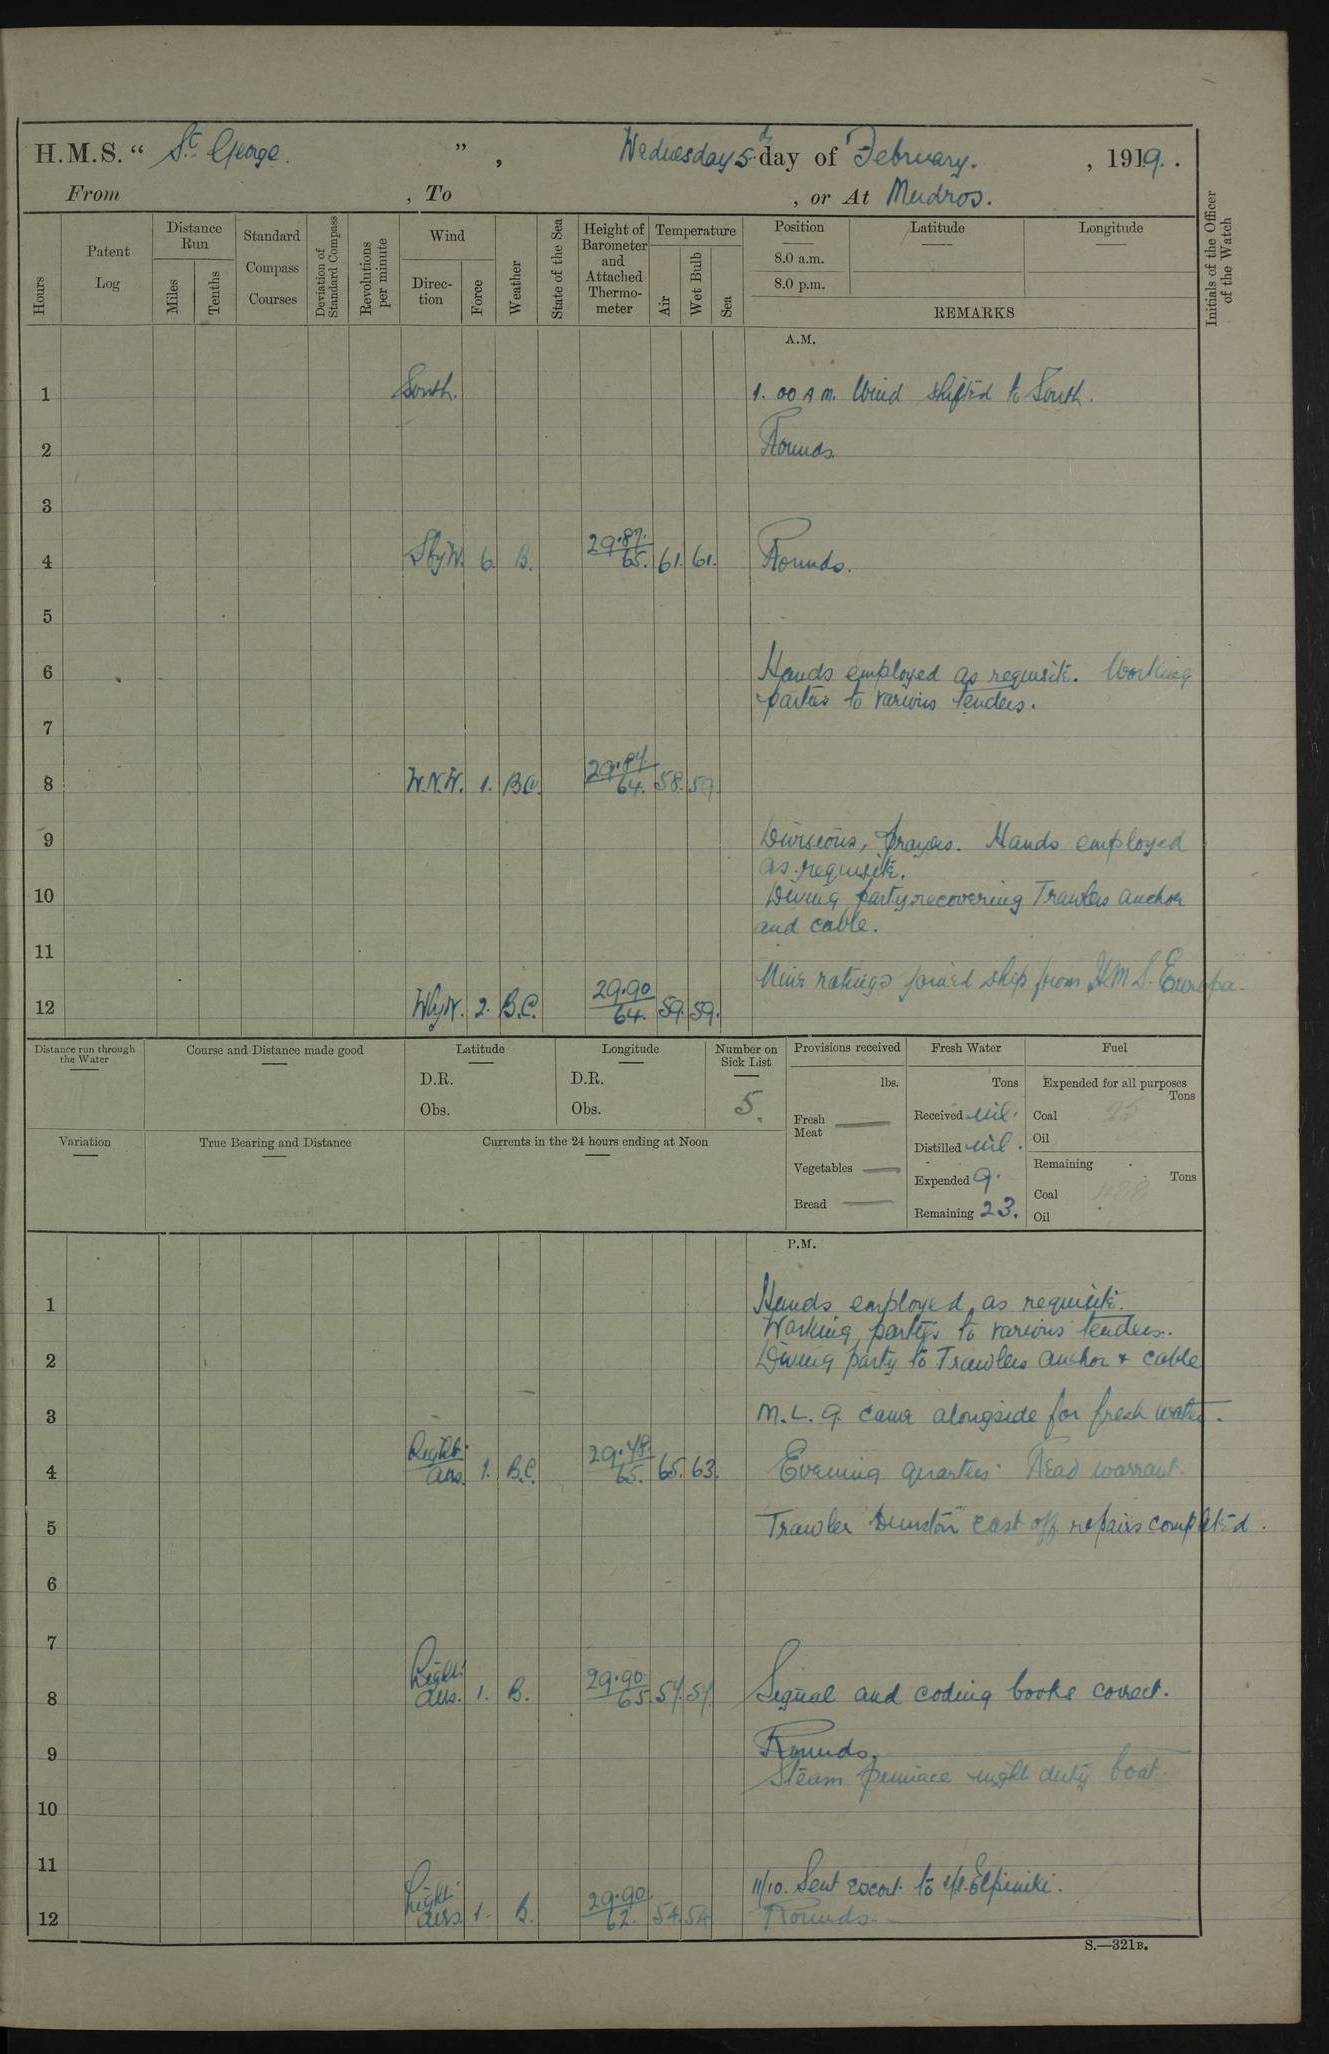 H.M.S. “ St. George. ” , Wednesday 5th day of February. , 1919.
From , To , or At Mudros.
Hours
Patent Log
Distance Run
Miles
Tenths
Standard Compass Courses
Deviation of Standard Compass
Revolutions per minute
Wind
Direction
Force
Weather
State of the Sea
Height of Barometer and Attached Thermometer
Temperature
Air
Wet Bulb
Sea
Position
8.0 a.m.
8.0 p.m.
Latitude
Longitude
REMARKS
Initials of the Officer of the Watch
A.M.
1 South. 1.00 A.M. Wind shifted to South.
2 Rounds.
3
4 S by W. 6. B. 29.87. 65. 61. 61. Rounds.
5
6 Hands employed as requisite. Working
parties to various tenders.
7
8 W.N.W. 1. B.C. 29.84 64. 58. 59
9 Divisions, prayers. Hands employed
as requisite.
10 Diving party recovering Trawlers anchor
and cable.
11
Nine ratings joined ship from H.M.S. Europa.
12 W by N. 2. B.C. 29.90 64. 59. 59.
Distance run through the Water
Course and Distance made good
Latitude
D.R.
Obs.
Longitude
D.R.
Obs.
Number on Sick List
5.
Provisions received
lbs.
Fresh Meat
Vegetables
Bread
Fresh Water
Tons
Received nil.
Distilled nil.
Expended 9.
Remaining 23.
Fuel
Expended for all purposes
Tons
Coal 25
Oil
Remaining
Tons
Coal
Oil
Variation
True Bearing and Distance
Currents in the 24 hours ending at Noon
P.M.
1 Hands employed as requisite.
Working partys to various tenders.
2 Diving party to Trawlers anchor & cable
3 M.L. 9. came alongside for fresh water.
4 Light airs. 1. B.C. 29.48. 65. 65. 63. Evening quarters. Read warrant.
5 Trawler "Dunston" cast off repairs completed.
6
7
8 Light airs. 1. B. 29.90 65 57. 57. Signal and coding books correct.
9 Rounds.
Steam pinnace night duty boat.
10
11 11/10. Sent escort to s/s. Elpiniki.
12 Light airs. 1. B. 29.90 62. 54. 54 Rounds.
S.—321B.